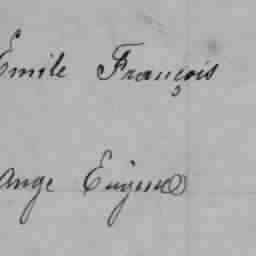 Emile François
Ange Eugène